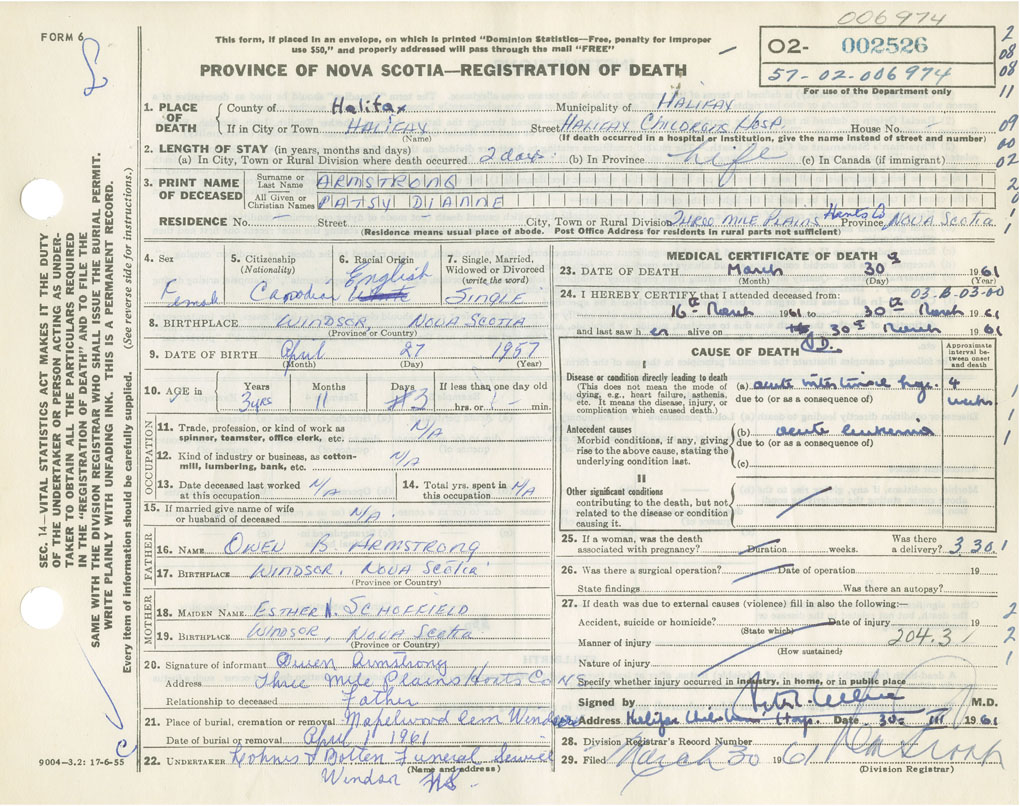 006974
FORM 6
This form, if placed in an envelope, on which is printed "Dominion Statistics—Free, penalty for improper
use $50," and properly addressed will pass through the mail "FREE"
02- 002526
57-02-006974
For use of the Department only
PROVINCE OF NOVA SCOTIA—REGISTRATION OF DEATH
1. PLACE OF DEATH
County of Halifax Municipality of HALIFAX
If in City or Town HALIFAX Street HALIFAX CHILDREN'S HOSP. House No. -
(Name) (If death occurred in a hospital or institution, give the name instead of street and number)
2. LENGTH OF STAY (in years, months and days)
(a) In City, Town or Rural Division where death occurred 2 days (b) In Province Life (c) In Canada (if immigrant)
3. PRINT NAME OF DECEASED
Surname or Last Name ARMSTRONG
All Given or Christian Names PATSY DIANNE
RESIDENCE No. - Street - City, Town or Rural Division THREE MILE PLAINS Hants Co Province NOVA SCOTIA
(Residence means usual place of abode. Post Office Address for residents in rural parts not sufficient)
4. Sex Female
5. Citizenship (Nationality) Canadian
6. Racial Origin English White
7. Single, Married, Widowed or Divorced (write the word) SINGLE
8. BIRTHPLACE WINDSOR NOVA SCOTIA
(Province or Country)
9. DATE OF BIRTH April 27 1957
(Month) (Day) (Year)
10. AGE in Years 3 yrs Months 11 Days 3 If less than one day old hrs. or min.
OCCUPATION
11. Trade, profession, or kind of work as spinner, teamster, office clerk, etc. N/A
12. Kind of industry or business, as cotton-mill, lumbering, bank, etc. N/A
13. Date deceased last worked at this occupation N/A
14. Total yrs. spent in this occupation N/A
15. If married give name of wife or husband of deceased N/A
FATHER
16. NAME OWEN B. ARMSTRONG
17. BIRTHPLACE WINDSOR, NOVA SCOTIA
(Province or Country)
MOTHER
18. MAIDEN NAME ESTHER N. SCHOFIELD
19. BIRTHPLACE WINDSOR, NOVA SCOTIA
(Province or Country)
20. Signature of informant Owen Armstrong
Address Three Mile Plains Hants Co NS
Relationship to deceased Father
21. Place of burial, cremation or removal Maplewood Cem Windsor
Date of burial or removal April 1 1961
22. UNDERTAKER Funeral Service
(Name and address)
Windsor NS.
MEDICAL CERTIFICATE OF DEATH
23. DATE OF DEATH March 30 1961
(Month) (Day) (Year)
24. I HEREBY CERTIFY that I attended deceased from: 03-B-03-00
16th March 1961 to 30th March 1961
and last saw her alive on 30th March 1961
CAUSE OF DEATH
Approximate interval between onset and death
I
Disease or condition directly leading to death
(This does not mean the mode of dying, e.g., heart failure, asthenia, etc. It means the disease, injury, or complication which caused death.)
(a) acute intestinal hge. 4 weeks.
due to (or as a consequence of)
Antecedent causes
Morbid conditions, if any, giving rise to the above cause, stating the underlying condition last.
(b) acute leukemia
due to (or as a consequence of)
(c)
II
Other significant conditions
contributing to the death, but not related to the disease or condition causing it.
25. If a woman, was the death associated with pregnancy? Duration weeks. Was there a delivery? 330
26. Was there a surgical operation? Date of operation 19
State findings Was there an autopsy?
27. If death was due to external causes (violence) fill in also the following:—
Accident, suicide or homicide? Date of injury 19
(State which)
Manner of injury 204.3
(How sustained)
Nature of injury
Specify whether injury occurred in industry, in home, or in public place
Signed by M.D.
Address Halifax Children Hosp. Date 30 III 1961
28. Division Registrar's Record Number
29. Filed March 30 1961
(Division Registrar)
SEC. 14—VITAL STATISTICS ACT MAKES IT THE DUTY
OF THE UNDERTAKER OR PERSON ACTING AS UNDER-
TAKER TO OBTAIN ALL THE PARTICULARS REQUIRED
IN THE "REGISTRATION OF DEATH" AND TO FILE THE
SAME WITH THE DIVISION REGISTRAR WHO SHALL ISSUE THE BURIAL PERMIT.
WRITE PLAINLY WITH UNFADING INK. THIS IS A PERMANENT RECORD.
Every item of information should be carefully supplied. (See reverse side for instructions.)
9004-3.2: 17-6-55
2
08
08
11
09
00
02
2
0
1
1
1
1
1
1
2
2
1